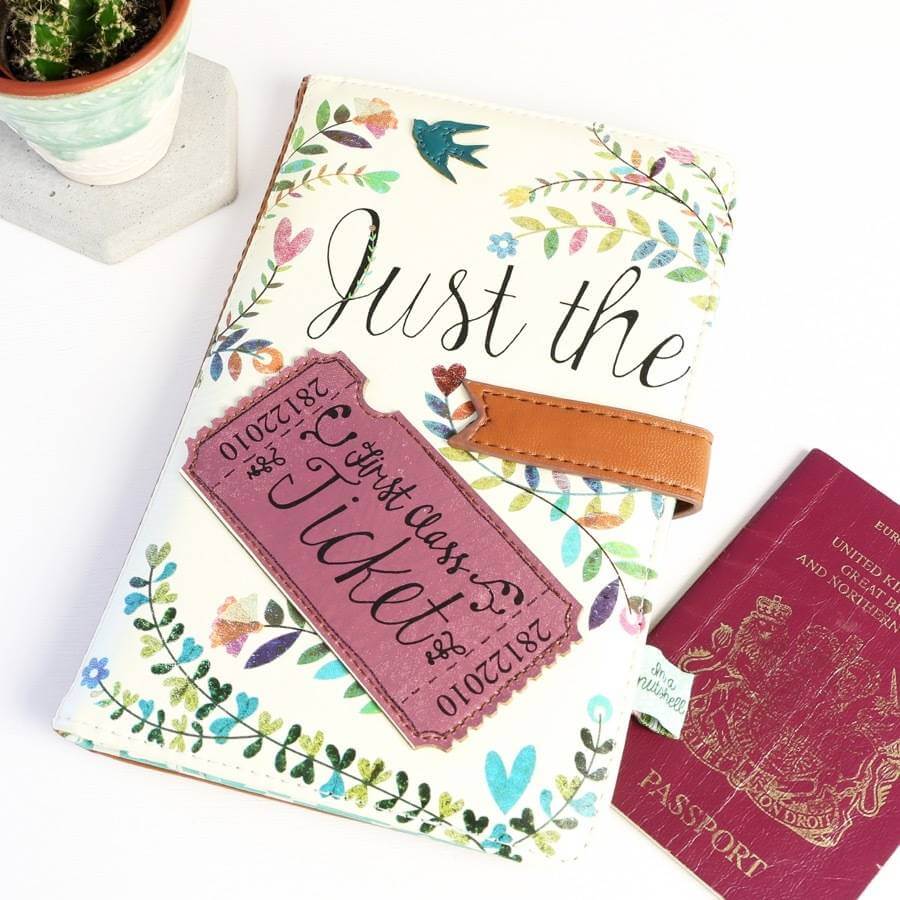 Just the
28122010
First class
Ticket
28122010
In a
nutshell
UNITED
GREAT
AND NORTHERN
PASSPORT
DROIT